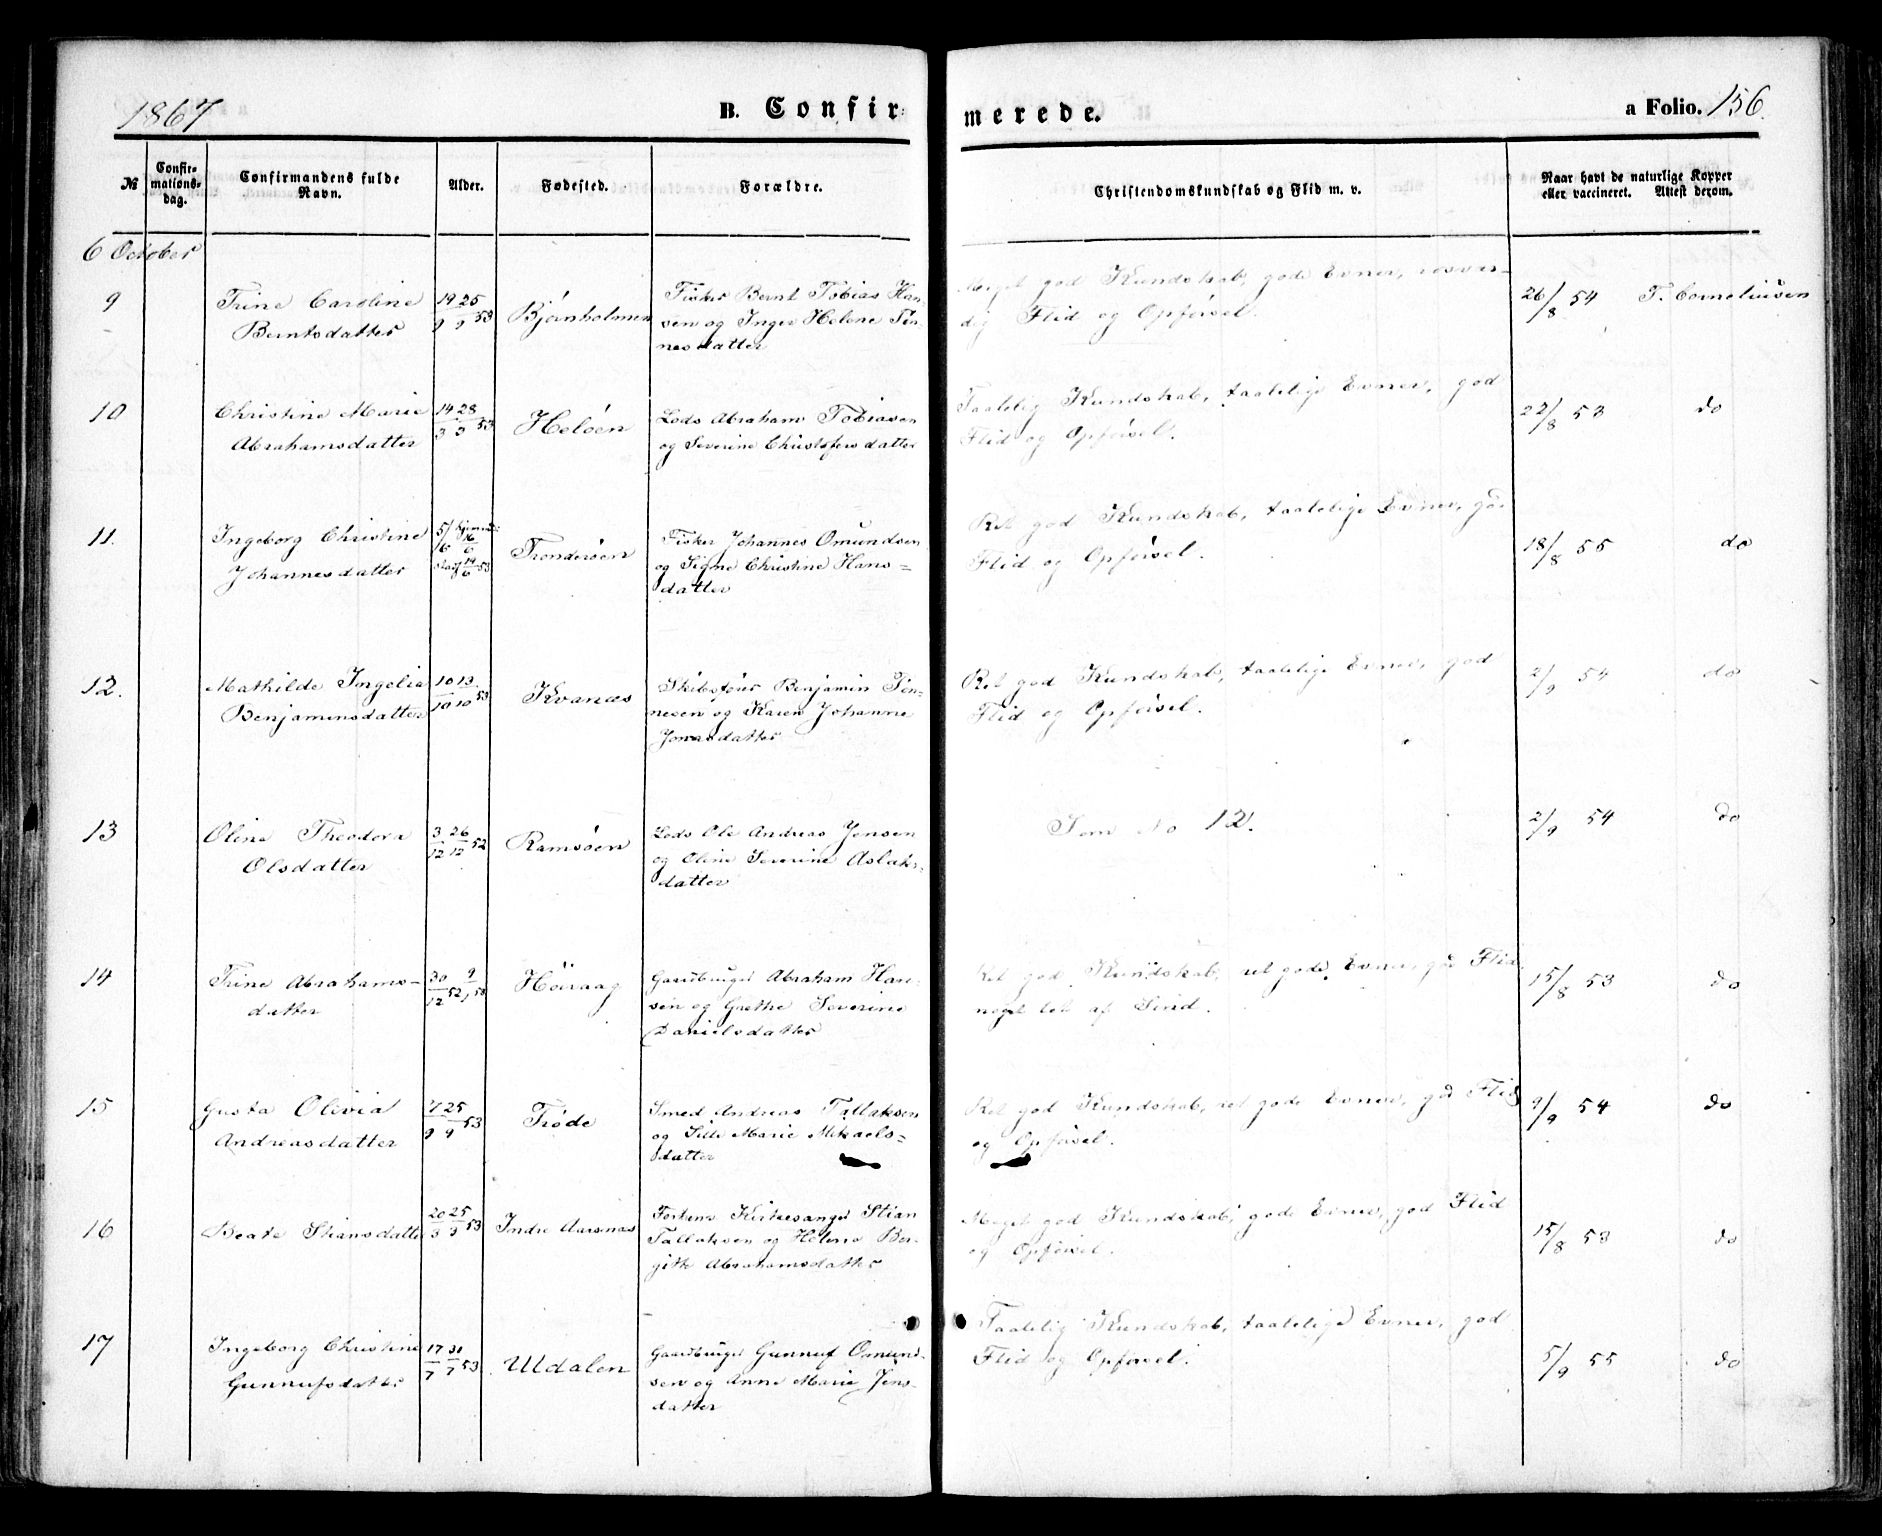 1867
B. Confirmerede.
a Folio. 156.
№ Confirmations-dag. Confirmandens fulde Navn. Alder. Fødested. Forældre. Christendomskundskab og Flid m. v. Naar havt de naturlige Kopper eller vaccineret. Attest derom.
6 October
9 Trine Caroline 19/9 25/9 53 Bjørnholmen Fisker Bernt Tobias Han- Meget god Kundskab, gode Evner, rosvær- 26/8 54 T. Corneliusen
Berntsdatter sen og Inger Helene Tøn- dig Flid og Opførsel.
nesdatter
10 Christine Marie 14/3 28/3 53 Heløen Lods Abraham Tobiasen Taalelig Kundskab, taalelige Evner, god 22/8 53 do
Abrahamsdatter og Severine Christofersdatter Flid og Opførsel.
11. Ingeborg Christine 5/6 hjemmed: 16/6 Tronderøen Fisker Johannes Omundsen Ret god Kundskab, taalelige Evner, god 18/8 55 do
Johannesdatter 14/6 53 og Signe Christine Hans= Flid og Opførsel.
datter
12. Mathilde Ingelia 10/10 13/10 53 Kvanæs Skibstøm: Benjamin Tøn- Ret god Kundskab, taalelige Evner, god 2/9 54 do
Benjaminsdatter nesen og Karen Johanne Flid og Opførsel.
Jonasdatter
13 Oline Theodora 3/12 26/12 52 Ramsøen Lods Ole Andreas Jensen Som No 12. 2/9 54 do
Olsdatter og Oline Severine Aslaks-
datter
14 Trine Abrahams- 30/12 52 9/1 53 Høiraag Gaardbruger Abraham Han- Ret god Kundskab, ret gode Evner, god Flid, 15/8 53 do
datter sen og Grethe Severine noget let af Sind.
Danielsdatter
15 Gusta Olivia 7/9 25/9 53 Trøde Smed Andreas Tallaksen Ret god Kundskab, ret gode Evner, god Flid 9/9 54 do
Andreasdatter og Sille Marie Mikaels= og Opførsel.
datter
16 Beate Stiansdatter 20/3 25/3 53 Indre Aarsnæs Forhen: Kirkesanger Stian Meget god Kundskab, gode Evner, god Flid 15/8 53 do
Tallaksen og Helene Ber- og Opførsel.
gitte Abrahamsdatter
17 Ingeborg Christine 17/7 31/7 53 Uldalen Gaardbruger Gunnuf Osmund- Taalelig Kundskab, taalelige Evner, god 5/9 55 do
Gunnufsdatter sen og Anne Marie Jens- Flid og Opførsel.
datter